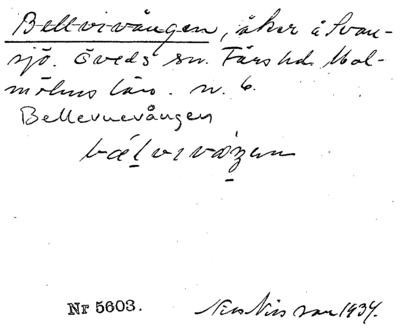 Bellvivången, åker å Svan-
sjö. Öveds sn. Färs hd. Mal-
möhus län. n. 6.
Bellevuevången
Nr 5603. Nils Nilsson 1934.